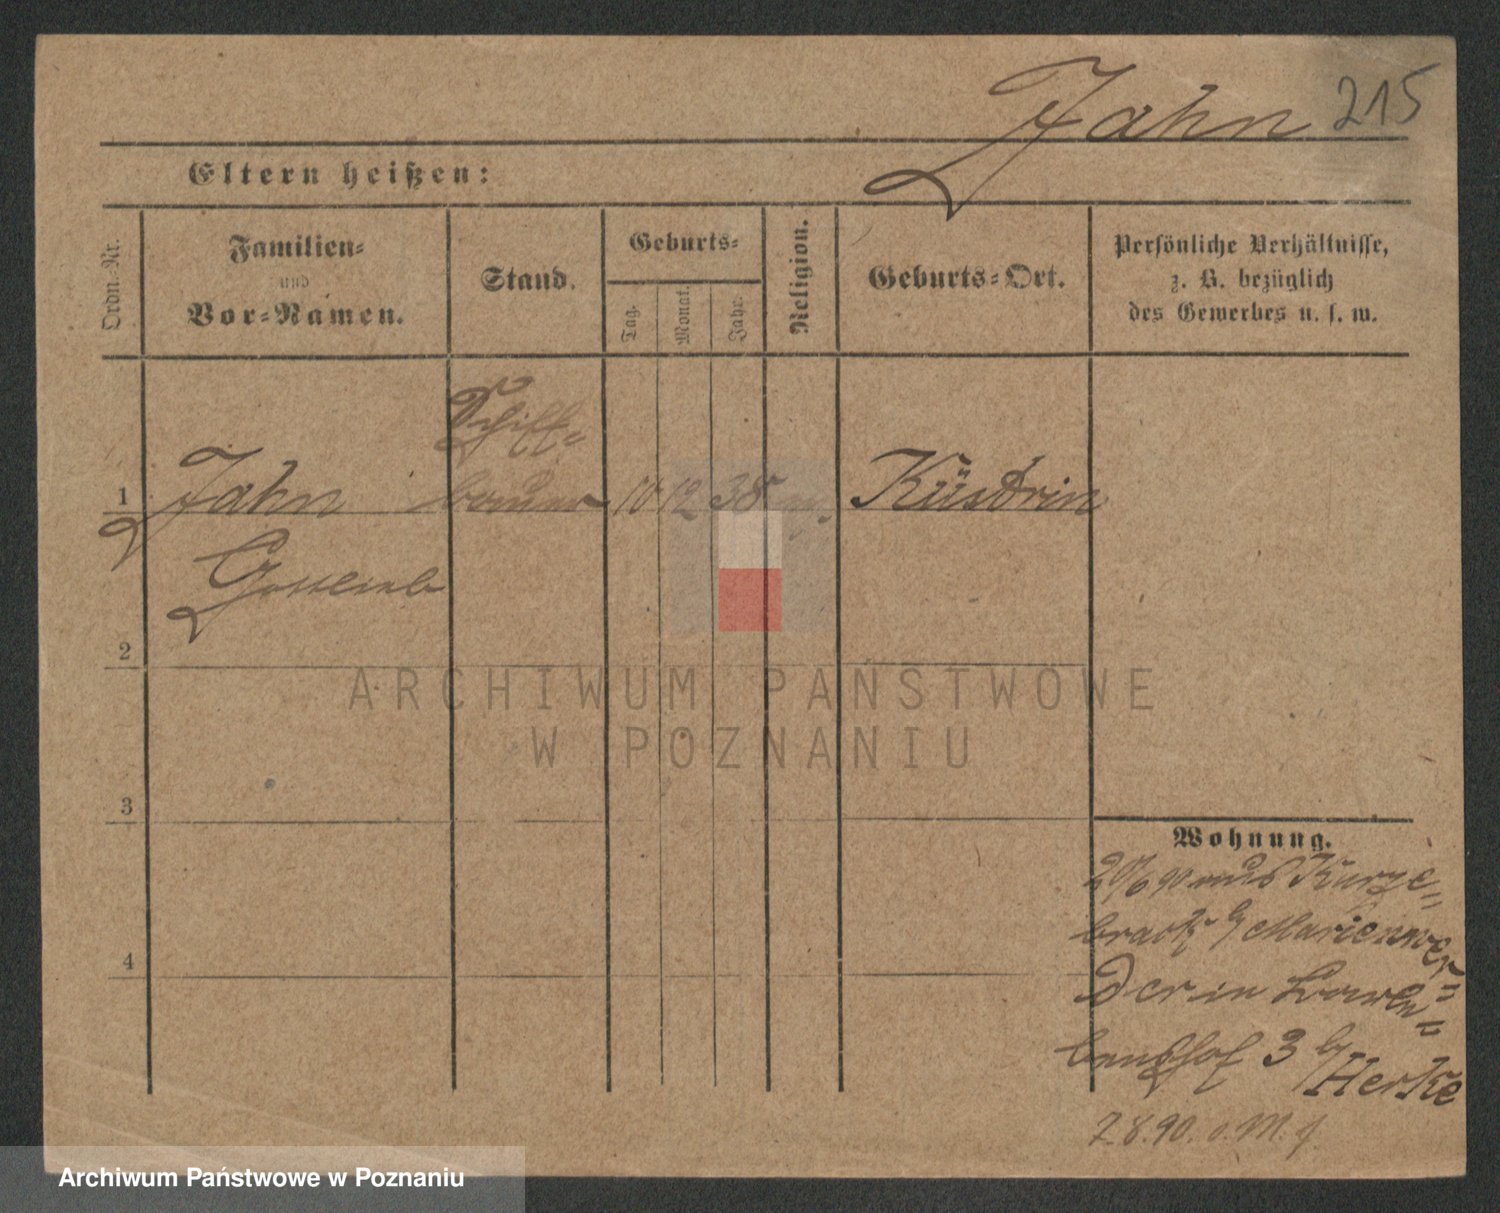 Jahn 215
Eltern heißen:
Ordn.-Nr.
Familien-
und
Vor-Namen.
Stand.
Geburts-
Tag.
Monat.
Jahr.
Religion.
Geburts-Ort.
Persönliche Verhältnisse,
z. B. bezüglich
des Gewerbes u. s. w.
Schiff-
1 Jahn bauer 10 12 38 Küstrin
Gottlieb
2
3
4
Wohnung.
20/6 90 aus Kurze-
brack b/ Marienwer-
der in
3 b/
Herke
7.8.90. o. M.
ARCHIWUM PAŃSTWOWE
W POZNANIU
Archiwum Państwowe w Poznaniu